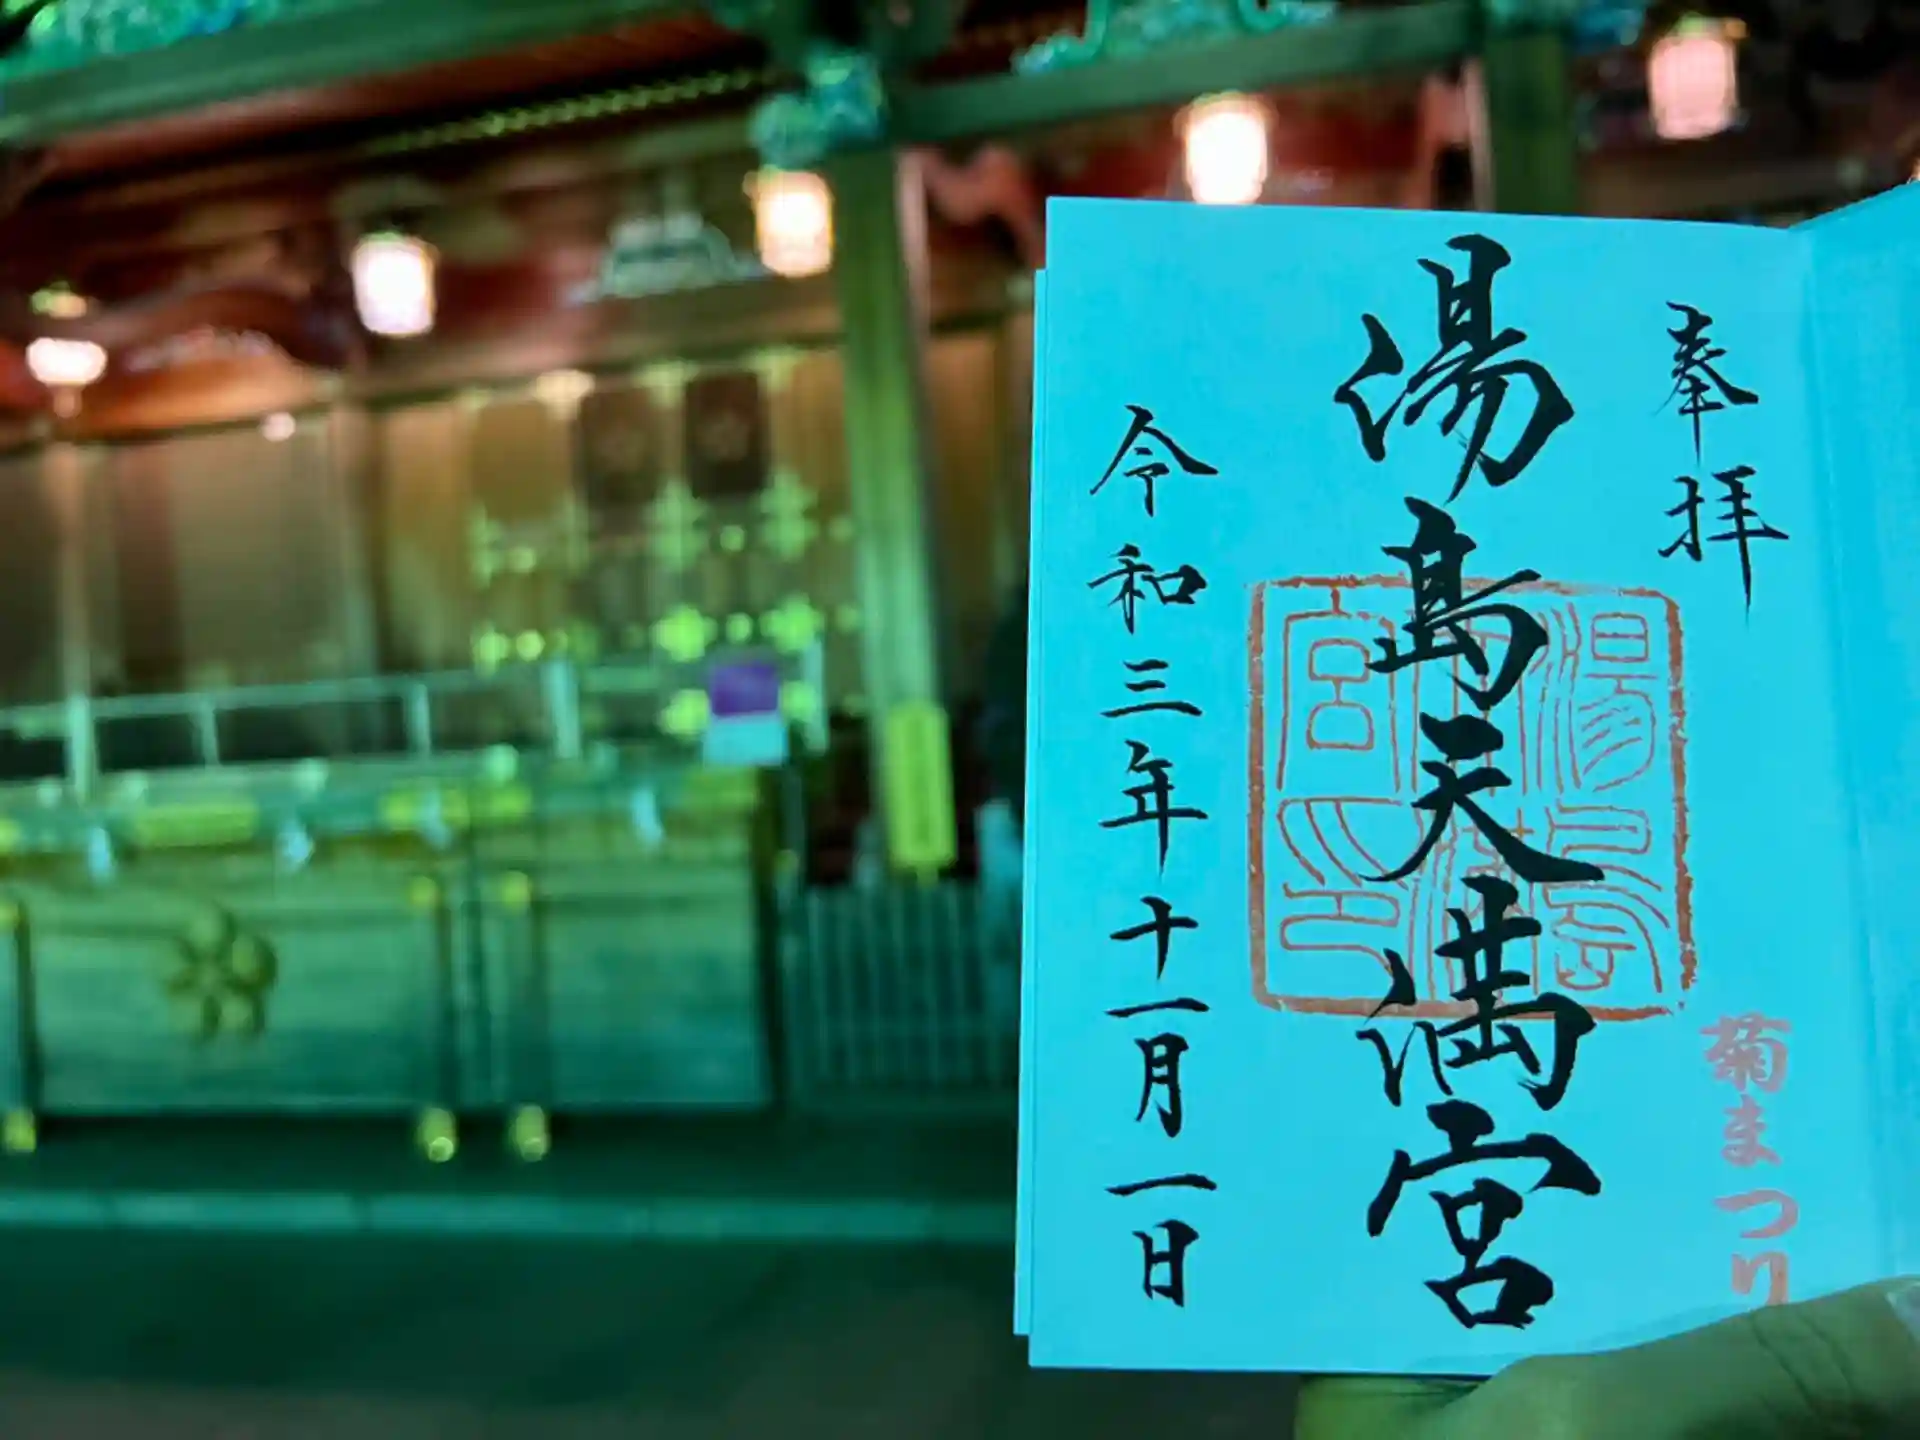 奉拝
湯島天満宮
菊まつり
令和三年十一月一日